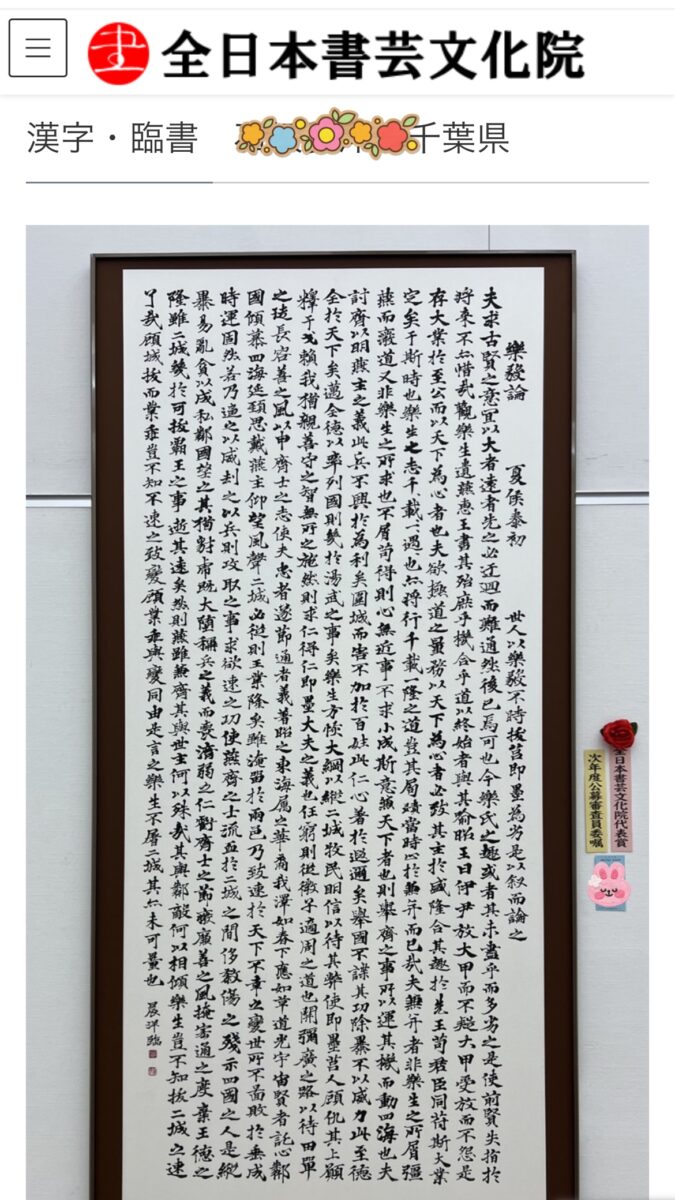 全日本書芸文化院
漢字・臨書
千葉県
樂毅論 夏侯泰初 世人以樂毅不時拔莒即墨為劣是以叙而論之
夫求古賢之意宜以大者遠者先之必迂迴而難通然後已焉可也今樂氏之趣或者其未盡乎而多劣之是使前賢失指於
将来不亦惜哉觀樂生遺燕惠王書其殆庶乎機合乎道以終始者與其喻昭王曰伊尹放大甲而不疑大甲受放而不怨是
存大業於至公而以天下為心者也夫欲極道之量務以天下為心者必致其主於盛隆合其趣於先王苟君臣同符斯大業
定矣于斯時也樂生之志千載一遇也亦将行千載一隆之道豈其局蹟當時止於無并而已哉夫無并者非樂生之所屑彊
燕而癈道又非樂生之所求也不屑苟得則心無近事不求小成斯意無天下者也則舉齊之事所以運其機而動四海也夫
討齊以明燕主之義此兵不興於為利矣圍城而害不加於百姓此仁心著於遐邇矣舉國不謀其功除暴不以威力此至德
全於天下矣邁全德以率列國則幾於湯武之事矣樂生方恢大綱以縱二城牧民明信以待其弊使即墨莒人顧仇其上願
釋干戈賴我猶親善守之智無所之施然則求仁得仁即墨大夫之義也任窮則從微子適周之道也開彌廣之路以待田單
之徒長容善之風以申齊士之志使夫忠者遂節通者義著昭之東海屬之華裔我澤如春下應如草道光宇宙賢者託心鄰
國傾慕四海延頸思戴燕主仰望風聲二城必從則王業隆矣雖淹留於兩邑乃致速於天下不幸之變世所不啚敗於垂成
時運固然若乃逼之以威劫之以兵則攻取之事求欲速之功使燕齊之士流血於二城之間侈煞傷之殘示四國之人是縱
暴易亂貪以成私鄰國望之其猶豺虎既大墮稱兵之義而喪濟弱之仁虧齊士之節癈廉善之風掩宏通之度棄王德之
隆雖二城幾於可拔霸王之事逝其遠矣然則燕雖兼齊其與世主何以殊哉其與鄰敵何以相傾樂生豈不知拔二城之速
了哉顧城拔而業乖豈不知不速之致變顧業乖與變同由是言之樂生不屠二城其亦未可量也
全日本書芸文化院代表賞
次年度公募審査員委嘱